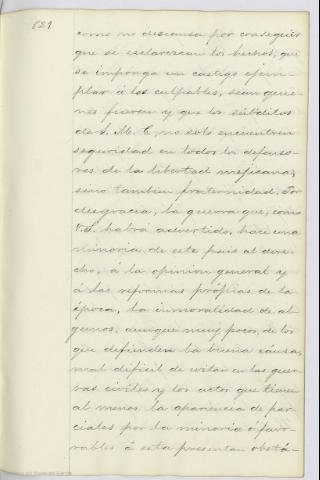 821.
como no descansa por conseguir
que se esclarezcan los hechos, que
se imponga un castigo ejem-
plar á los culpables, sean quie-
nes fueren y que los súbditos
de S. M. C. no solo encuentren
seguridad en todos los defenso-
res de la libertad mejicana,
sino tambien fraternidad. Por
desgracia, la guerra que, como
V. S. habrá advertido, hace una
minoria de este pais al dere-
cho, á la opinion general y
á las reformas propias de la
época, la inmoralidad de al-
gunos, aunque muy pocos, de los
que defienden la buena causa,
mal dificil de evitar en las guer-
ras civiles y los actos que tienen
al menos la apariencia de par-
ciales por la minoria ó favo-
rables á esta presentan obstá-